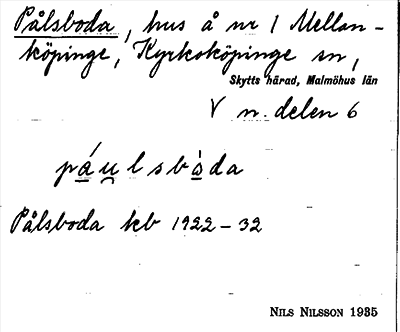 Pålsboda, hus å nr 1 Mellan-
köpinge, Kyrkoköpinge sn,
Skytts härad, Malmöhus län
V n. delen 6
páu̯lsbòda
Pålsboda kb 1922-32
NILS NILSSON 1935